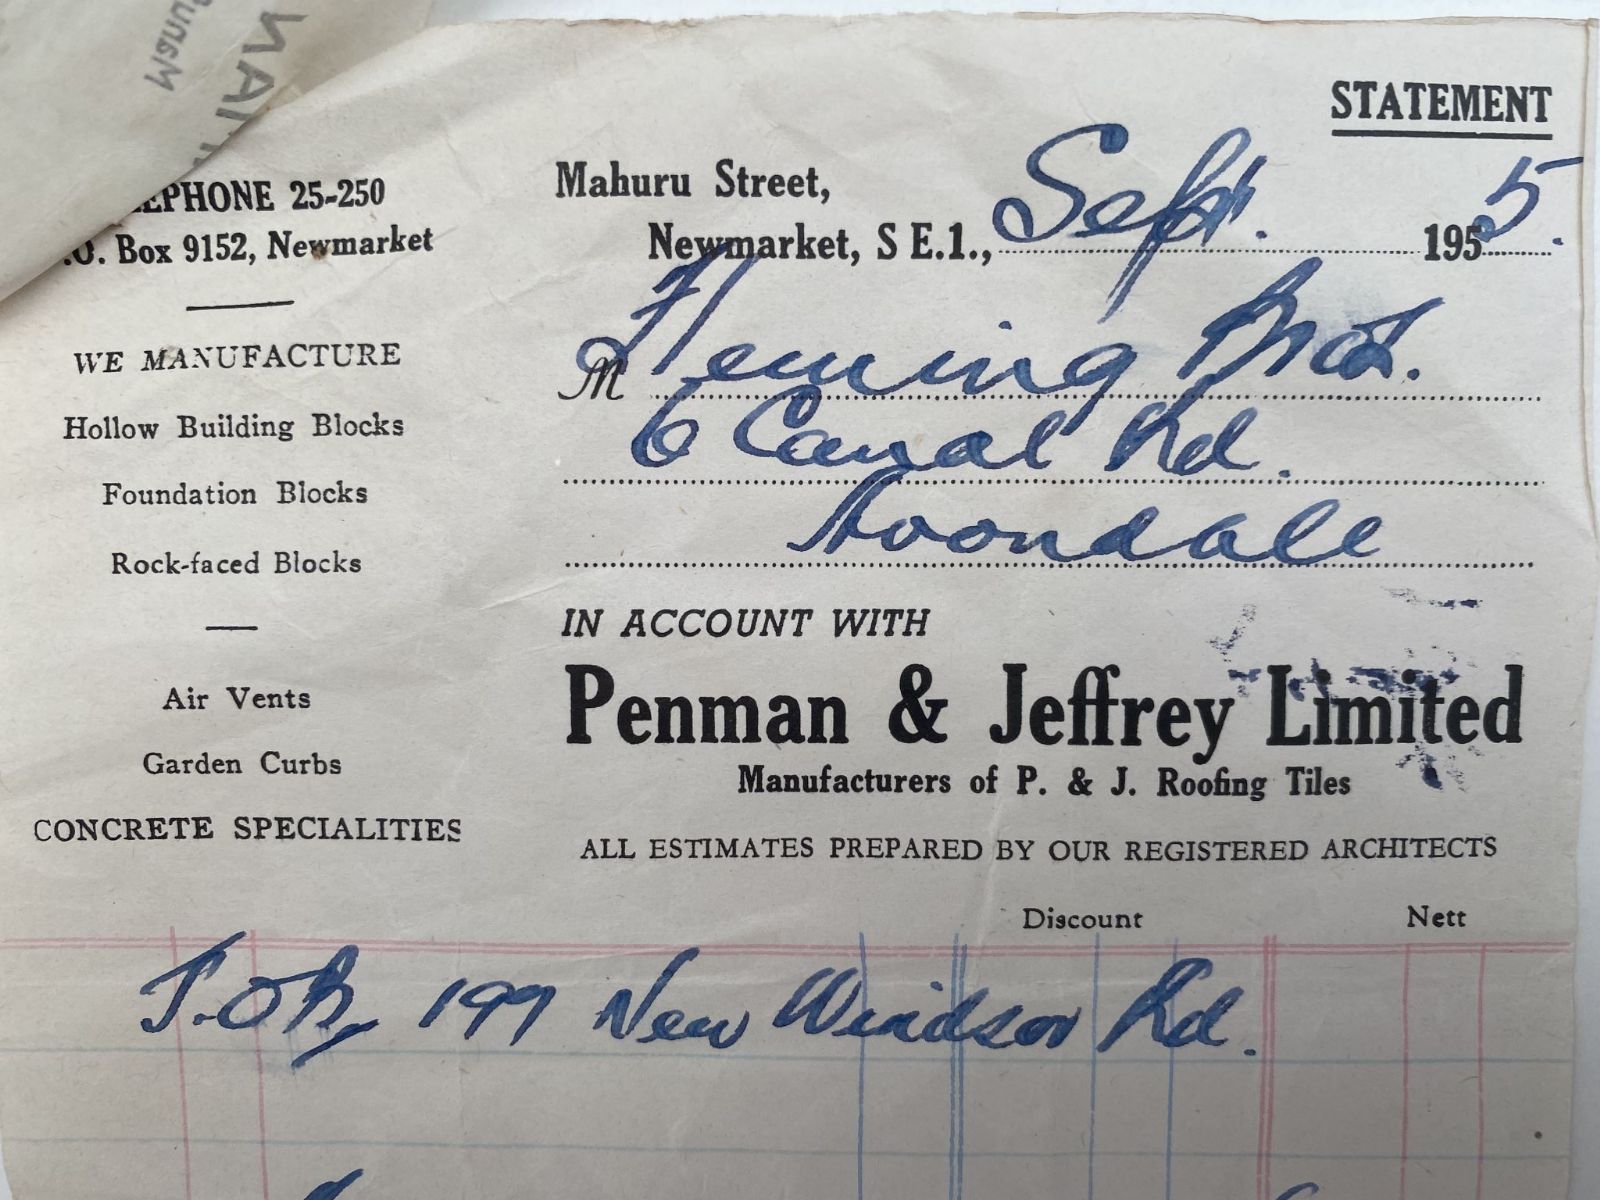 STATEMENT
TELEPHONE 25-250
P.O. Box 9152, Newmarket
Mahuru Street,
Newmarket, S E.1., Sept. 1955.
WE MANUFACTURE
Hollow Building Blocks
Foundation Blocks
Rock-faced Blocks
Air Vents
Garden Curbs
CONCRETE SPECIALITIES
M Fleming Bros.
6 Canal Rd.
Avondale
IN ACCOUNT WITH
Penman & Jeffrey Limited
Manufacturers of P. & J. Roofing Tiles
ALL ESTIMATES PREPARED BY OUR REGISTERED ARCHITECTS
Discount Nett
JOB 199 New Windsor Rd.